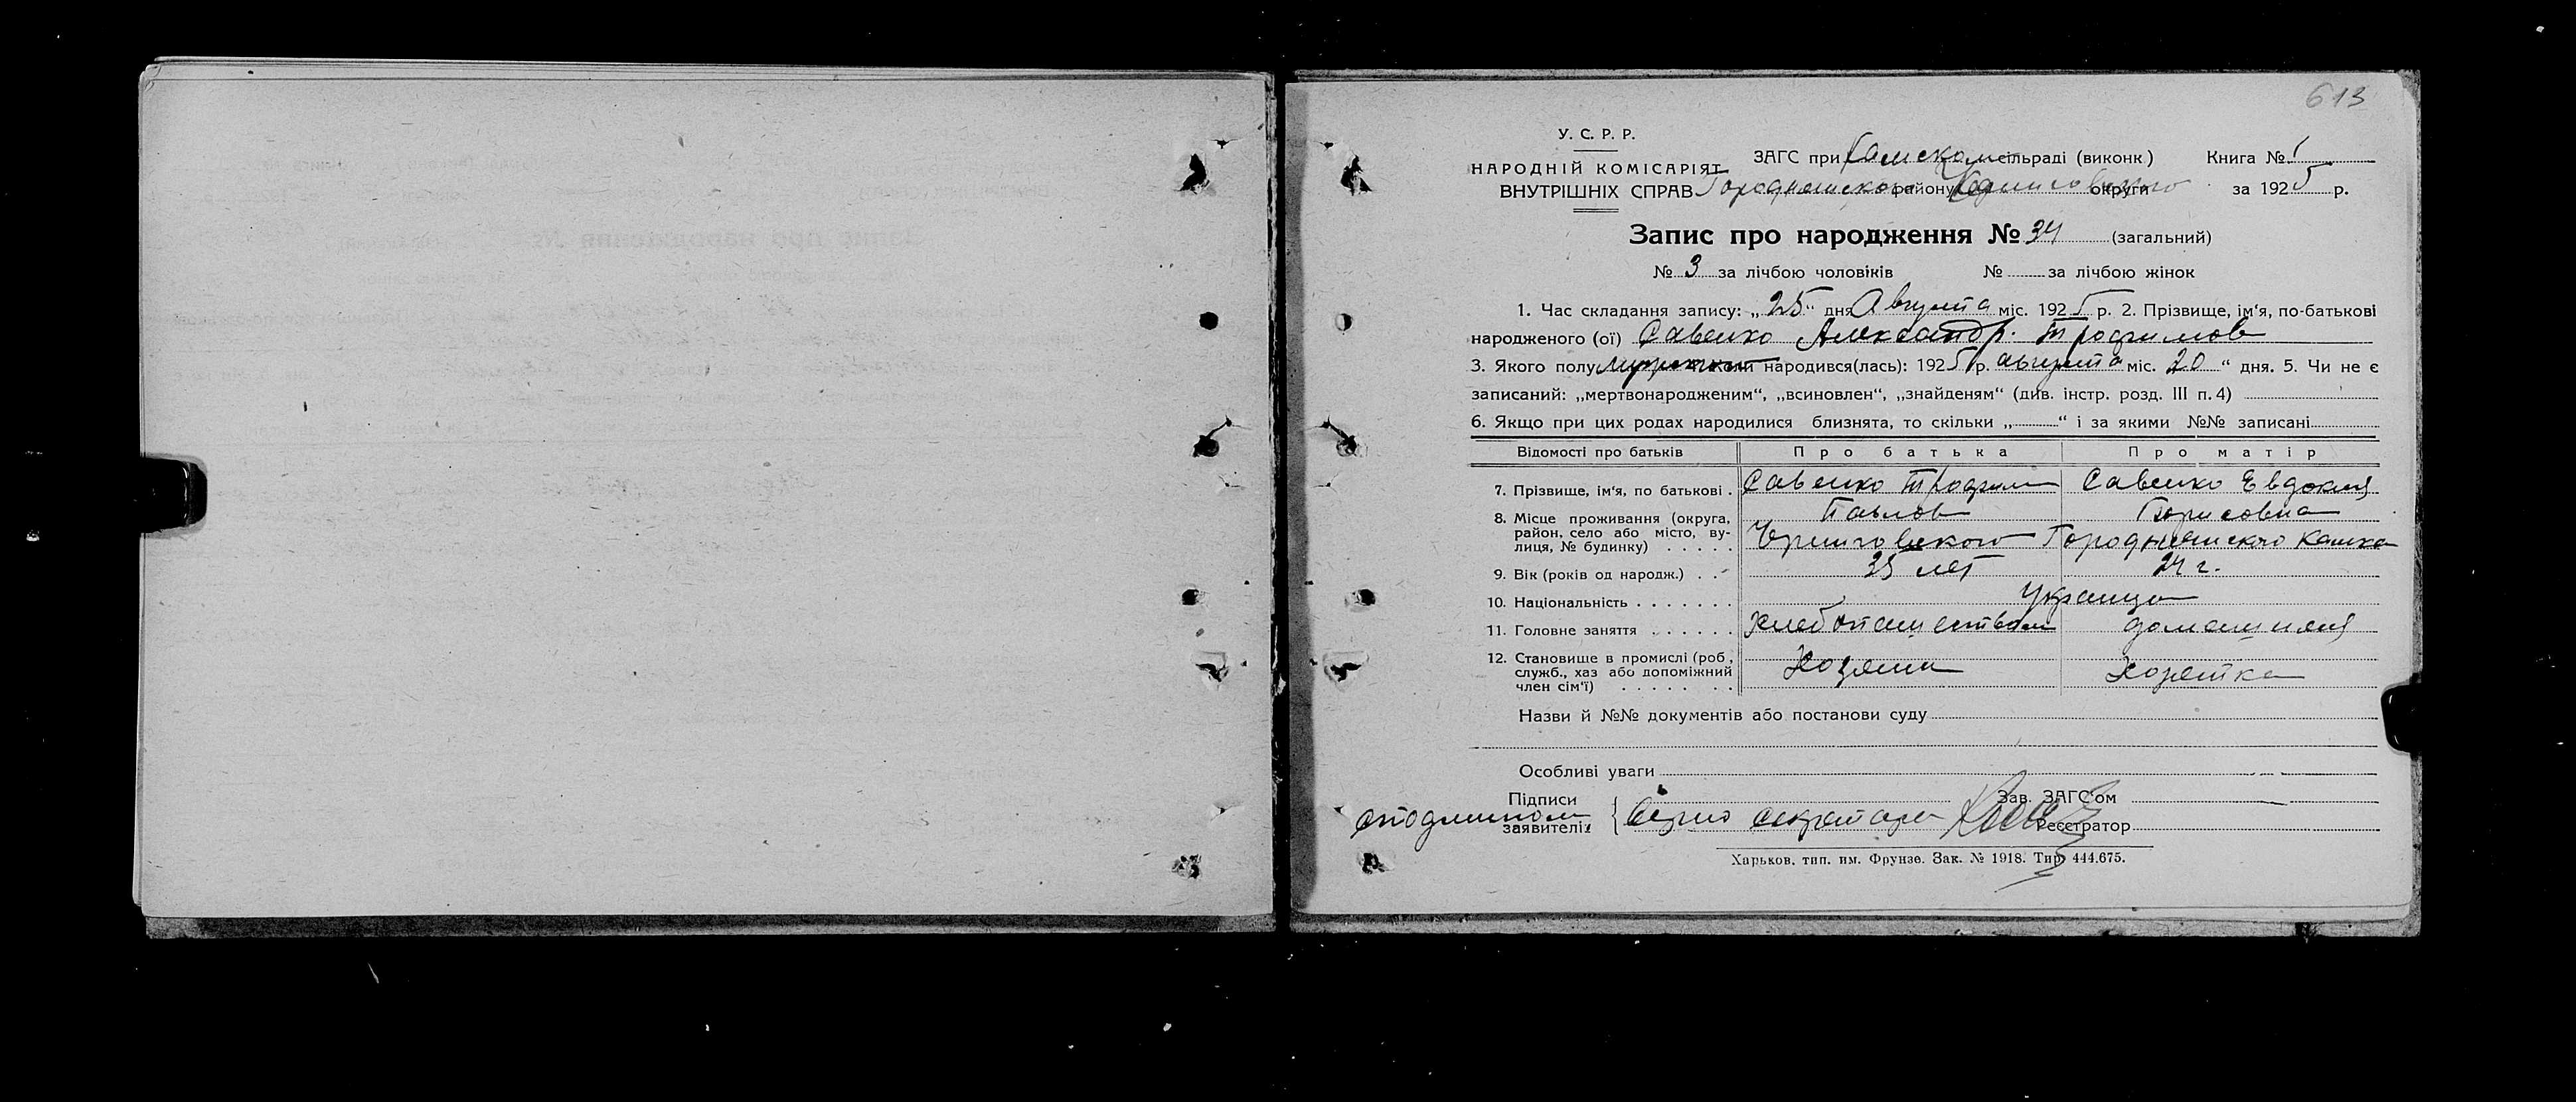 613
У. С. Р. Р.
НАРОДНІЙ КОМІСАРІЯТ
ВНУТРІШНІХ СПРАВ
ЗАГС при сільраді (виконк.) Книга № 1
району округи за 1925 р.
Запис про народження № 34 (загальний)
№ 3 за лічбою чоловіків № за лічбою жінок
1. Час складання запису: „25" дня Августа міс. 1925 р. 2. Прізвище, ім'я, по-батькові
народженого (ої) Савенко Александр. Трофимов
3. Якого полу народився(лась): 1925 р. августа міс. 20 " дня. 5. Чи не є
записаний: „мертвонародженим", „всиновлен", „знайденям" (див. інстр. розд. III п. 4)
6. Якщо при цих родах народилися близнята, то скільки „ " і за якими №№ записані
Відомості про батьків Про батька Про матір
7. Прізвище, ім'я, по батькові . Савенко Трофим Павлов Савенко Евдокия Борисовна
8. Місце проживання (округа, район, село або місто, вулиця, № будинку) . . . . .
9. Вік (років од народж.) . . . 35 лет 24 г.
10. Національність . . . . . . . Украинцы
11. Головне заняття . . . . . . Хлебопашеством домашняя
12. Становище в промислі (роб., служб., хаз або допоміжний член сім'ї) . . . . . . . Хозяин Хозяйка
Назви й №№ документів або постанови суду
Особливі уваги
Підписи заявителів Зав. ЗАГС'ом
Реєстратор
с подлинном верно секретарь
Харьков. тип. им. Фрунзе. Зак. № 1918. Тир. 444.675.